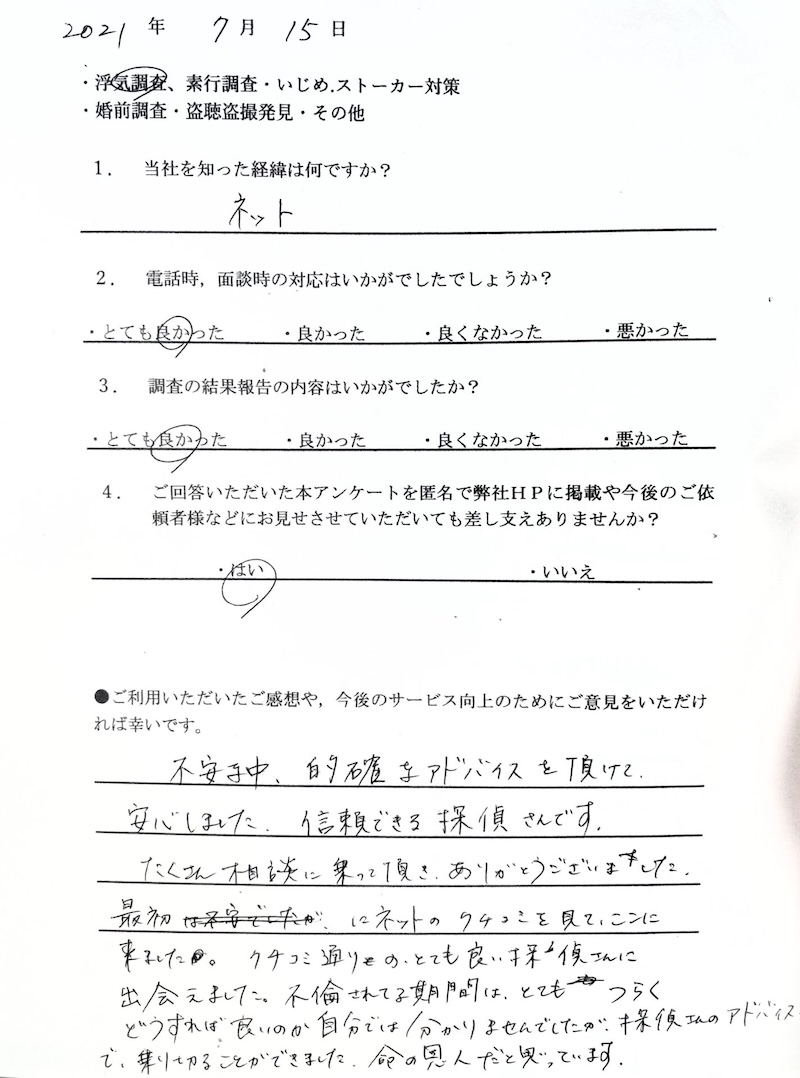 2021年 7月 15日
・浮気調査、素行調査・いじめ.ストーカー対策
・婚前調査・盗聴盗撮発見・その他
1. 当社を知った経緯は何ですか？
ネット
2. 電話時，面談時の対応はいかがでしたでしょうか？
・とても良かった ・良かった ・良くなかった ・悪かった
3. 調査の結果報告の内容はいかがでしたか？
・とても良かった ・良かった ・良くなかった ・悪かった
4. ご回答いただいた本アンケートを匿名で弊社ＨＰに掲載や今後のご依
頼者様などにお見せさせていただいても差し支えありませんか？
・はい ・いいえ
●ご利用いただいたご感想や，今後のサービス向上のためにご意見をいただけ
れば幸いです。
不安な中、的確なアドバイスを頂けて、
安心しました。信頼できる探偵さんです。
たくさん相談に乗って頂き、ありがとうございました。
最初は不安でしたが、にネットのクチコミを見て、ここに
来ました。クチコミ通りの、とても良い探偵さんに
出会えました。不倫されてる期間は、とてもつらく
どうすれば良いのか自分では分かりませんでしたが、探偵さんのアドバイス
で、乗り切ることができました。命の恩人だと思っています。